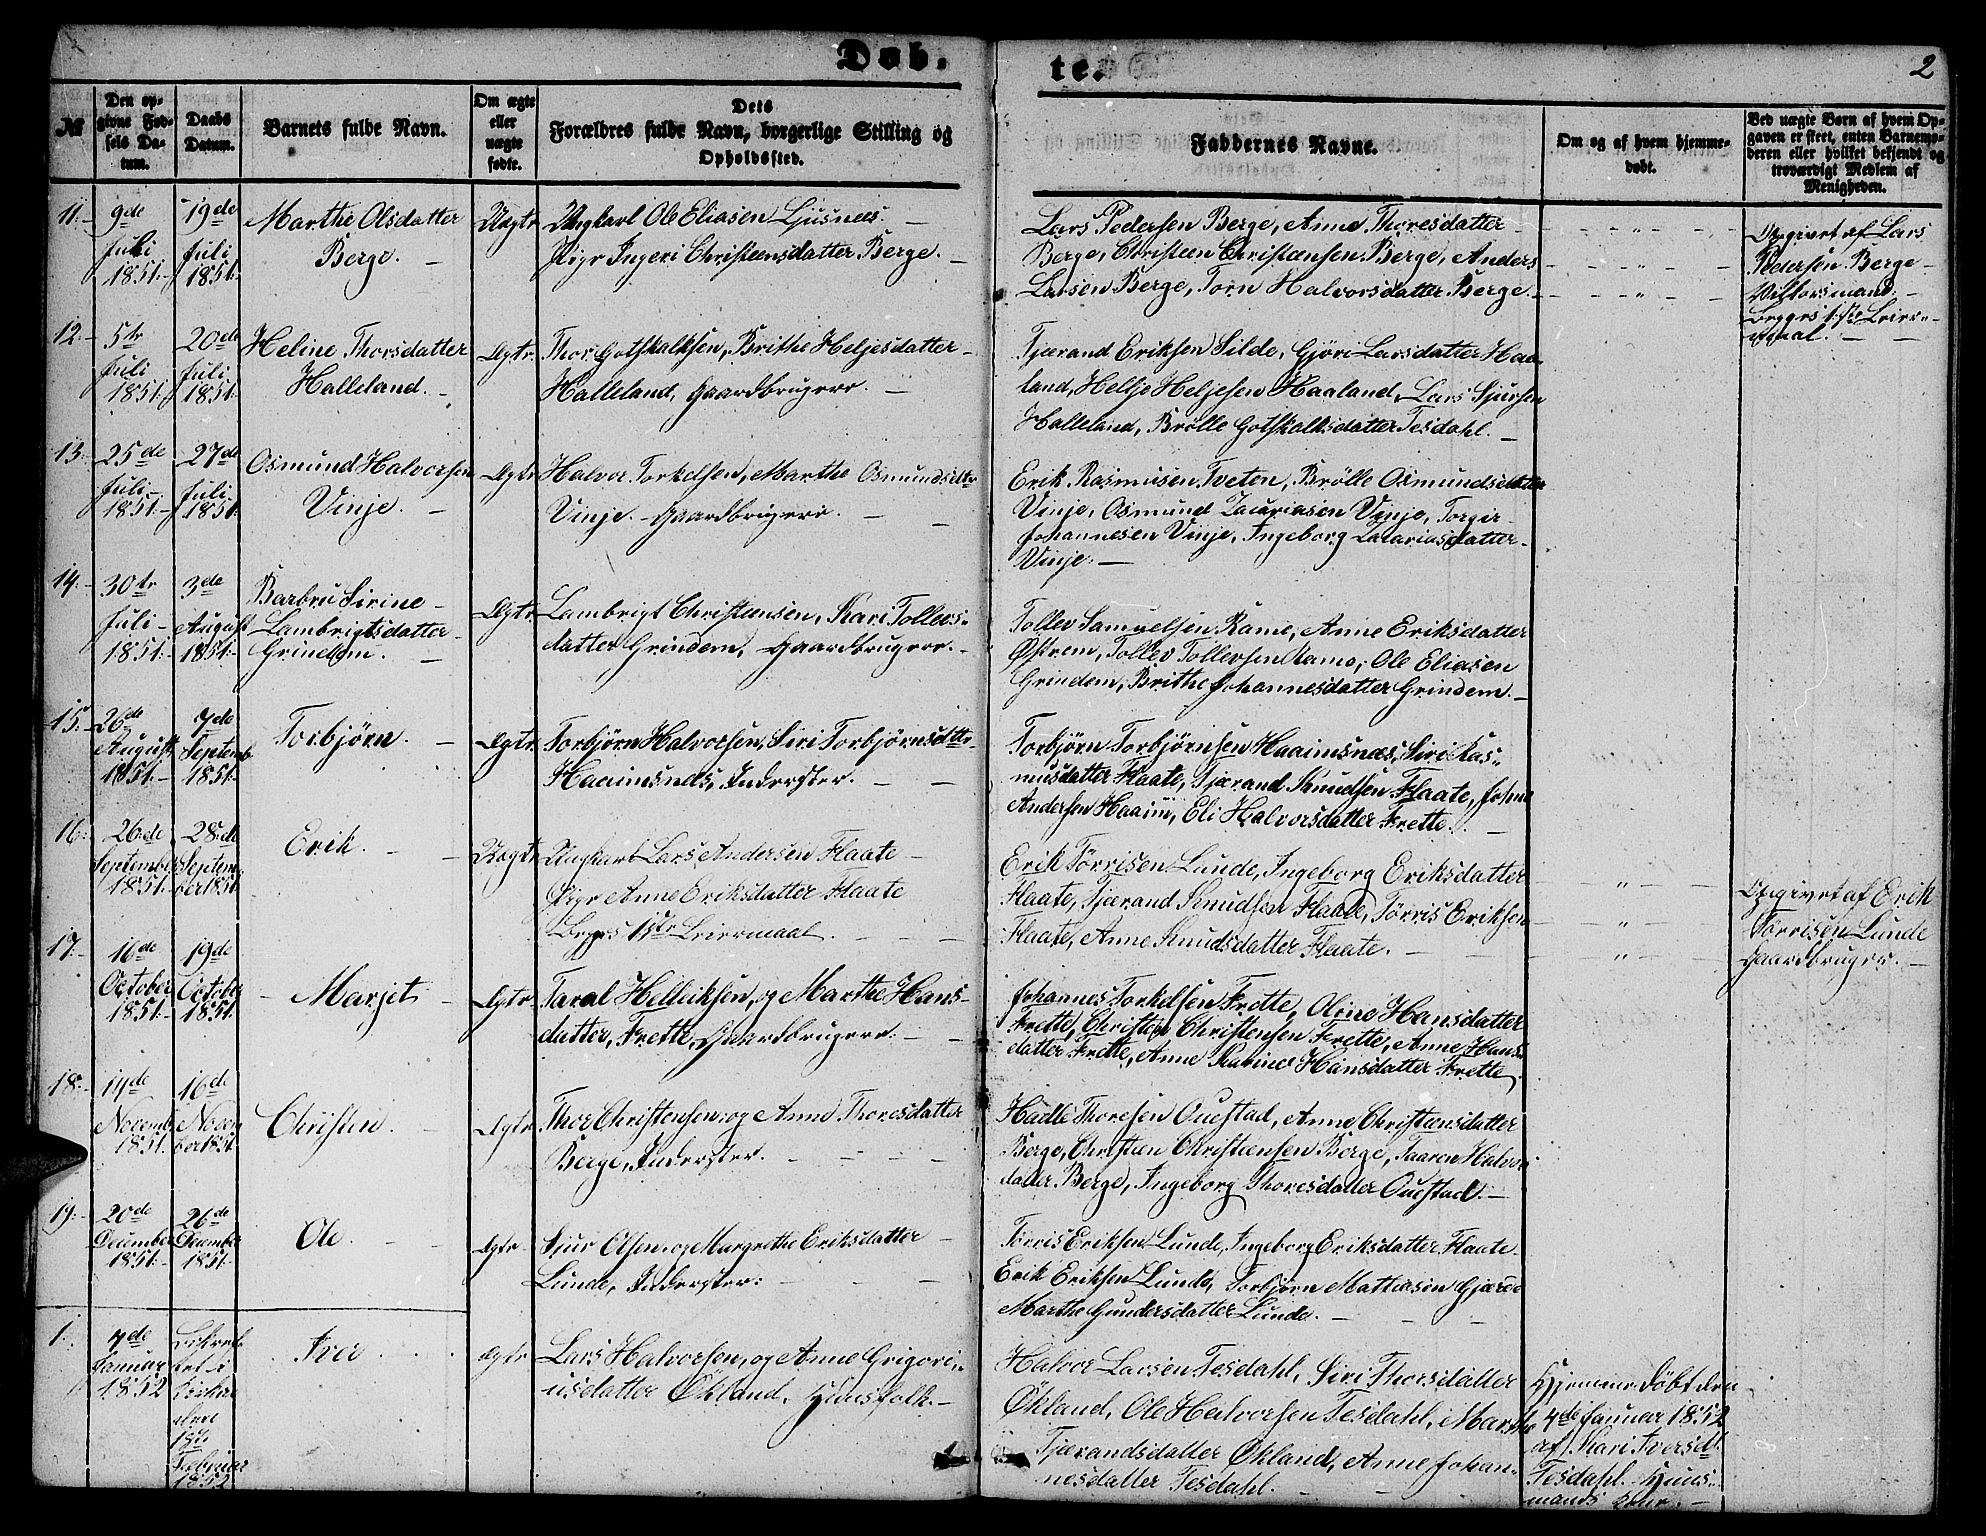 Døb.
te.
2
№
Den op-
givne Fød-
sels Da-
tum.
Daabs
Datum.
Barnets fulde Navn.
Om ægte
eller
uægte
fødte.
Dets
Forældres fulde Navn, borgerlige Stilling og
Opholdssted.
Faddernes Navne.
Om og af hvem hjemme-
døbt.
Ved uægte Børn af hvem Op-
gaven er skeet, enten Barnemo-
deren eller hvilket bekjendt og
troværdigt Medlem af
Menigheden.
11.
9de
Juli
1851.
19de
Juli
1851.
Marthe Olsdatter
Berge.
Uægte
Ungkarl Ole Eliasen Ljusnæs.
Pige Ingeri Christiensdatter Berge.
Lars Pedersen Berge, Anne Thoresdatter
Berge, Christen Christensen Berge, Anders
Larsen Berge, Torn Halvorsdatter Berge.
Opgivet af Lars
Pedersen Berge
Begges 1ste Leier-
maal.
12.
5te
Juli
1851.
20de
Juli
1851.
Heline Thorsdatter
Halleland.
Ægte
Thor Gotskalksen, Brithe Heljesdatter
Halleland, Gaardbrugere.
Tjærand Eriksen Silde, Gjøri Larsdatter Haa-
land, Helje Heljesen Haaland, Lars Sjursen
Halleland, Brølle Gotskalksdatter Tesdahl.
13.
25de
Juli
1851.
27de
Juli
1851.
Osmund Halvorsen
Vinje.
Ægte
Halvor Torkelsen, Marthe Osmundsdtr
Vinje. Gaardbrugere.
Erik Rasmusen Tveten, Brølle Osmundsdatter
Vinje, Osmund Zacariasen Vinje, Torger
Johannesen Vinje, Ingeborg Zacariasdatter
Vinje.
14.
30te
Juli
1851.
3de
August
1851.
Barbru Sirine
Lambrigtsdatter
Grindem.
Ægte
Lambrigt Christensen, Kari Tollevs-
datter Grindem, Gaardbrugere.
Tollev Samuelsen Rame, Anne Eriksdatter
Østrem, Tollev Tollevsen Rame, Ole Eliasen
Grindem, Brithe Johannesdatter Grindem.
15.
26de
August
1851.
7de
Septemb
1851.
Torbjørn.
Ægte
Torbjørn Halvorsen, Siri Torbjørnsdtr
Haaimsnæs, Inderster.
Torbjørn Torbjørnsen Haaimsnæs, Siri Ras-
musdatter Flaate, Tjærand Knudsen Flaate, John
Andersen Haaim, Eli Halvorsdatter Frette.
16.
26de
September
1851.
28de
Septem-
ber 1851.
Erik.
Uægte
Ungkarl Lars Andersen Flaate
Pige Anne Eriksdatter Flaate
Begges 1ste Leiermaal.
Erik Tørrisen Lunde, Ingeborg Eriksdatter
Flaate, Tjærand Knudsen Flaate, Tørris Eriksen
Flaate, Anne Knudsdatter Flaate.
Opgivet af Erik
Tørrisen Lunde
Gaardbruger.
17.
16de
October
1851.
19de
October
1851.
Marjet
Ægte
Taral Helleiksen, og Marthe Hans-
datter, Frette, Gaardbrugere.
Johannes Torkelsen Frette, Oline Hansdatter
Frette, Christen Christensen Frette, Anne Hans-
datter Frette, Anne Karine Hansdatter Frette,
18.
14de
Novemb
1851.
16de
Novem
ber 1851.
Christen
Ægte
Thor Christensen, og Anne Thoresdatter
Berge, Inderster.
Hadle Thoresen Ouestad, Anne Christensdatter
Berge, Christen Christensen Berge, Taaren Halvor
datter Berge, Ingeborg Thoresdatter Ouestad.
19.
20de
December
1851.
26de
December
1851.
Ole.
Ægte
Sjur Olsen, og Margrethe Eriksdatter
Lunde, Inderster.
Tørris Eriksen Lunde, Ingeborg Eriksdatter Flaate.
Erik Eriksen Lunde, Torbjørn Mathiasen Gjærde
Marthe Gundersdatter Lunde.
1.
4de
Januar
1852
kirken
Februar
1852
Iver
Ægte
Lars Halvorsen, og Anne Grigori-
usdatter Økland, Huusfolk.
Halvor Larsen Tesdahl, Siri Thorsdatter
Økland, Ole Halvorsen Tesdahl, Marthe
Tjærandsdatter Økland, Anne Johan-
nesdatter Tesdahl.
Hjemme døbt den
4de Januar 1852
af Kari Iversdt.
Tesdahl, Huus-
mands